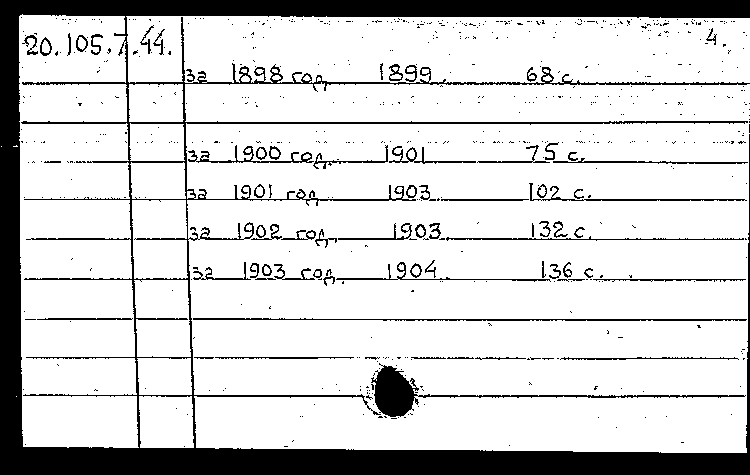 20.105.7.44.
4.
за 1898 год 1899. 68 с.
за 1900 год. 1901 75 с.
за 1901 год 1903 102 с.
за 1902 год. 1903. 132 с.
за 1903 год. 1904. 136 с.